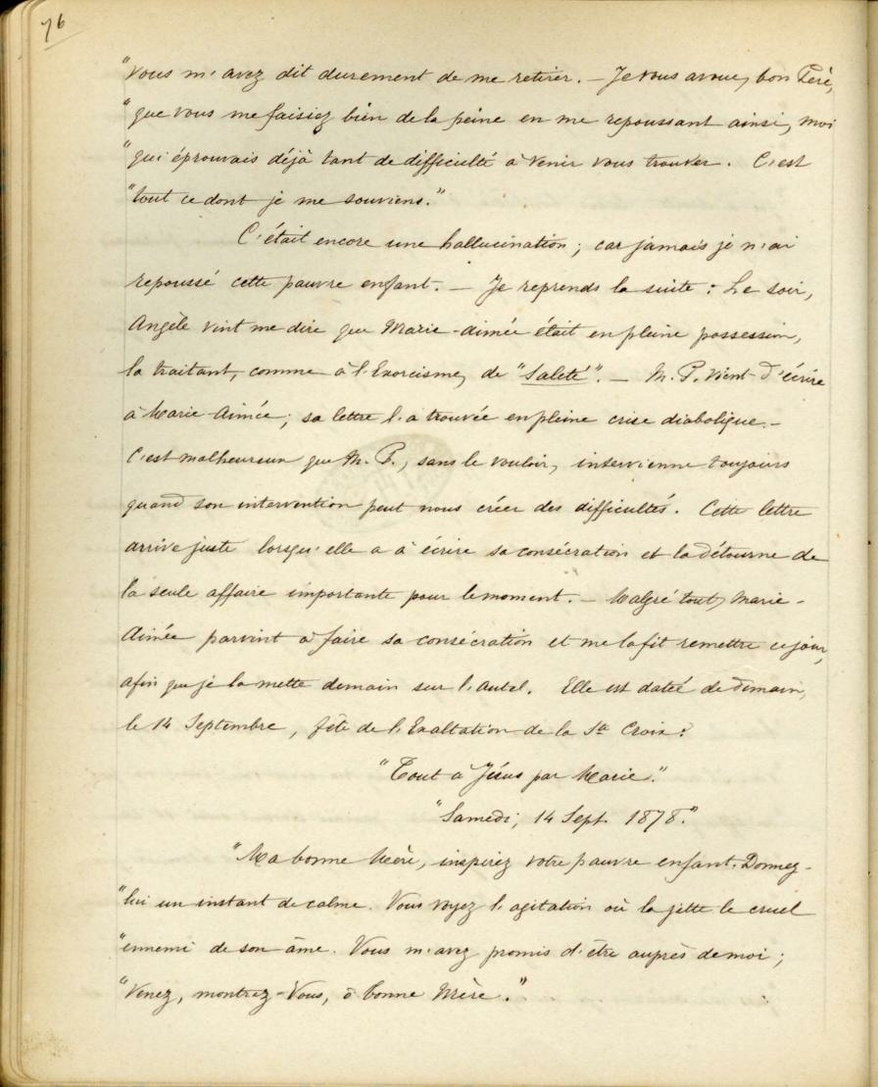 76
"vous m'avez dit durement de me retirer. — Je vous avoue, bon Père,
"que vous me faisiez bien de la peine en me repoussant ainsi, moi
"qui éprouvais déjà tant de difficulté à venir vous trouver. C'est
"tout ce dont je me souviens."
C'était encore une hallucination ; car jamais je n'ai
repoussé cette pauvre enfant. — Je reprends la suite : Le soir,
Angèle vint me dire que Marie-Aimée était en pleine possession,
la traitant, comme à l'Exorcisme, de "Saleté". — M. P. vient d'écrire
à Marie-Aimée ; sa lettre l'a trouvée en pleine crise diabolique. —
C'est malheureux que M. P., sans le vouloir, intervienne toujours
quand son intervention peut nous créer des difficultés. Cette lettre
arrive juste lorsqu'elle a à écrire sa consécration et la détourne de
la seule affaire importante pour le moment. — Malgré tout, Marie-
Aimée parvint à faire sa consécration et me la fit remettre ce jour,
afin que je la mette demain sur l'autel. Elle est datée de demain,
le 14 Septembre, fête de l'Exaltation de la Ste Croix :
"Tout à Jésus par Marie."
"Samedi, 14 Sept. 1878."
"Ma bonne Mère, inspirez votre pauvre enfant. Donnez-
"lui un instant de calme. Vous voyez l'agitation où la jette le cruel
"ennemi de son âme. Vous m'avez promis d'être auprès de moi ;
"Venez, montrez-Vous, ô bonne Mère."